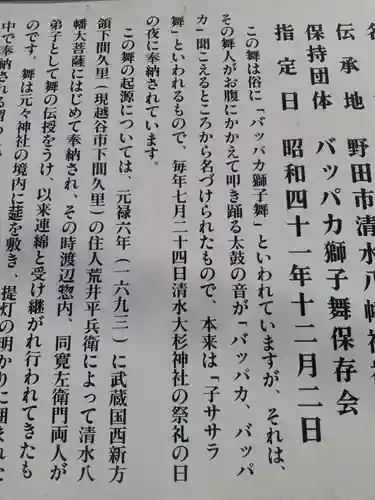 伝承地　野田市清水八幡神社
保持団体　バッパカ獅子舞保存会
指定日　昭和四十一年十二月二日
この舞は俗に「バッパカ獅子舞」といわれていますが、それは、
その舞人がお腹にかかえて叩き踊る太鼓の音が「バッパカ、バッパ
カ」聞こえるところから名づけられたもので、本来は「子ササラ
舞」といわれるもので、毎年七月二十四日清水大杉神社の祭礼の日
の夜に奉納されています。
この舞の起源については、元禄六年（一六九三）に武蔵国西新方
領下間久里（現越谷市下間久里）の住人荒井平兵衛によって清水八
幡大菩薩にはじめて奉納され、その時渡辺惣内、同寛左衛門両人が
弟子として舞の伝授をうけ、以来連綿と受け継がれ行われてきたも
のです。舞は元々神社の境内に莚を敷き、提灯の明かりに囲まれた
中で奉納される